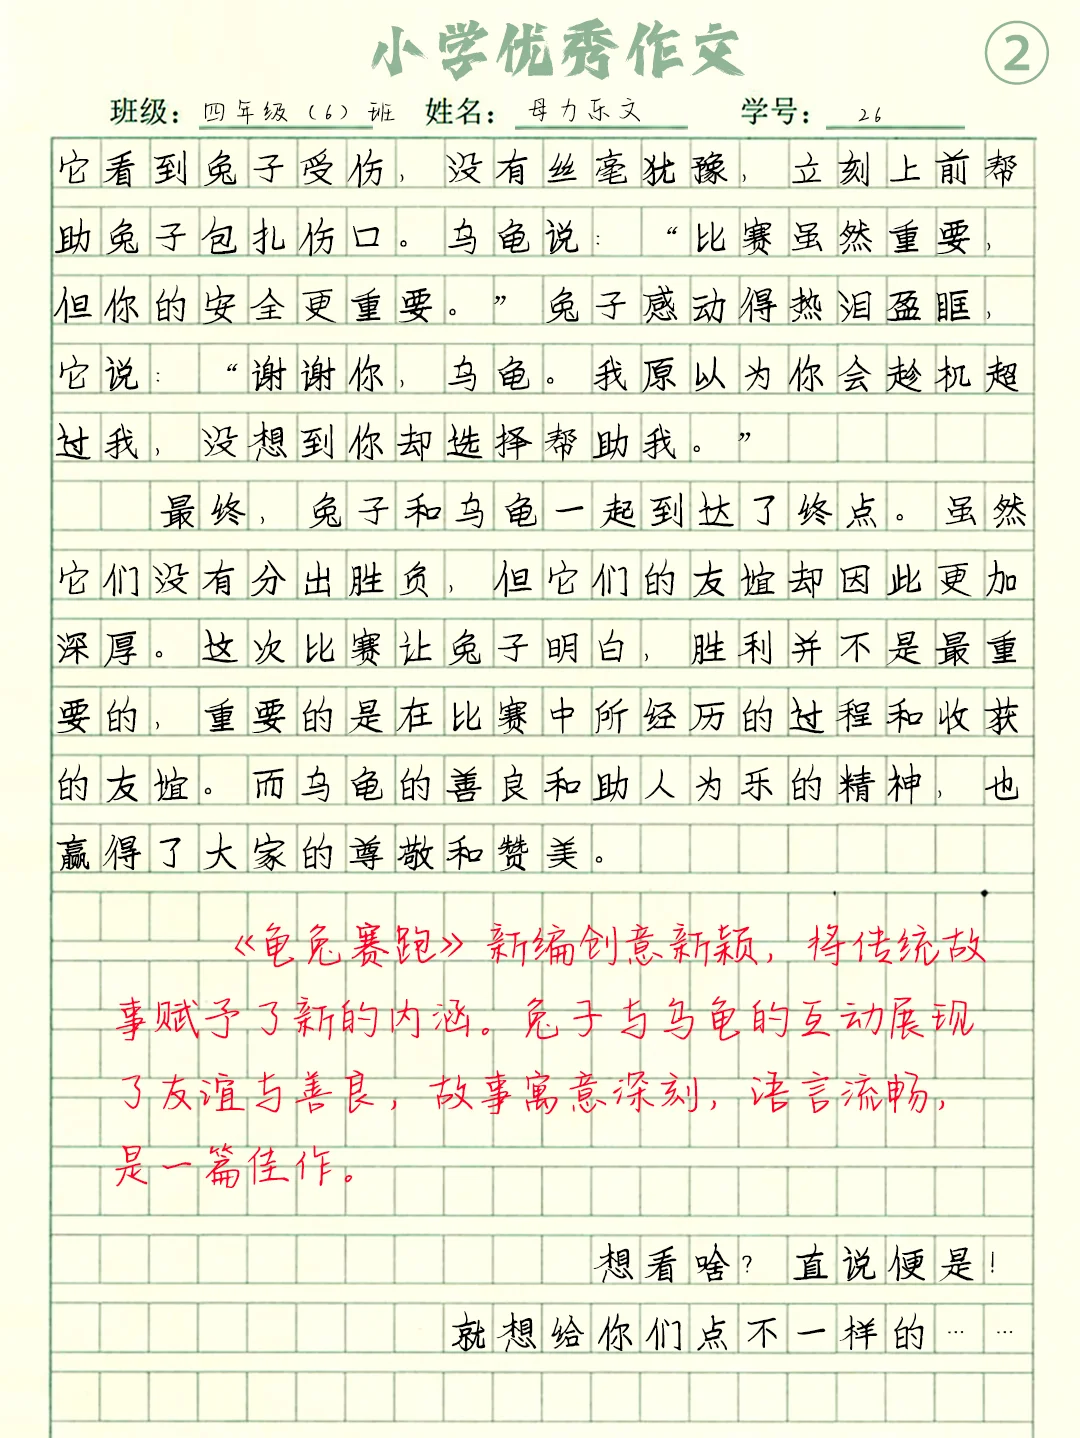 小学优秀作文
②
班级：四年级（6）班 姓名：母力乐文 学号：26
它看到兔子受伤，没有丝毫犹豫，立刻上前帮
助兔子包扎伤口。乌龟说：“比赛虽然重要，
但你的安全更重要。”兔子感动得热泪盈眶，
它说：“谢谢你，乌龟。我原以为你会趁机超
过我，没想到你却选择帮助我。”
最终，兔子和乌龟一起到达了终点。虽然
它们没有分出胜负，但它们的友谊却因此更加
深厚。这次比赛让兔子明白，胜利并不是最重
要的，重要的是在比赛中所经历的过程和收获
的友谊。而乌龟的善良和助人为乐的精神，也
赢得了大家的尊敬和赞美。
《龟兔赛跑》新编创意新颖，将传统故
事赋予了新的内涵。兔子与乌龟的互动展现
了友谊与善良，故事寓意深刻，语言流畅，
是一篇佳作。
想看啥？直说便是！
就想给你们点不一样的……